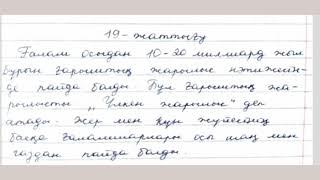 19 - жаттығу
Ғалам осыдан 10-20 миллиард жыл
бұрын ғарыштық жарылыс нәтижесін-
де пайда болды Бұл ғарыштық жа-
рылысты „Үлкен жарылыс" деп
атады. Жер мен күн жүйесінің
басқа ғаламшарлары осы шаң мен
газдан пайда болды.